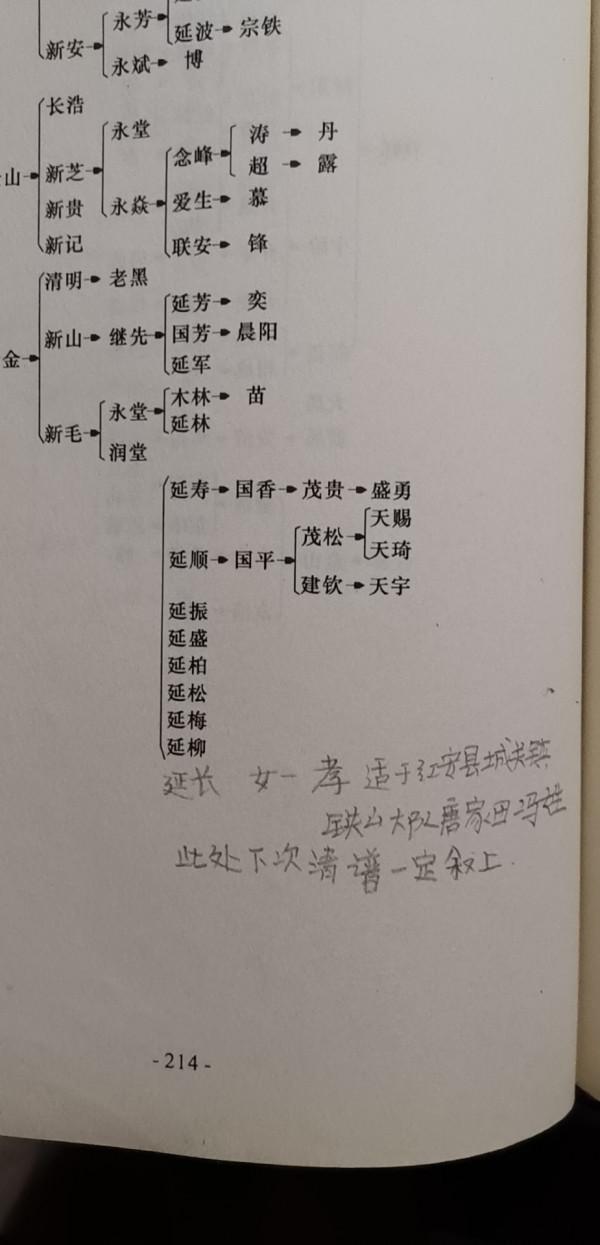 永芳
延波 宗铁
新安
永斌 博
长浩
永堂
涛 丹
念峰
超 露
山 新芝
新贵 永焱 爱生 慕
新记
联安 锋
清明 老黑
延芳 奕
新山 继先 国芳 晨阳
金
延军
木林 苗
永堂
延林
新毛
润堂
延寿 国香 茂贵 盛勇
天赐
茂松
天琦
延顺 国平
建钦 天宇
延振
延盛
延柏
延松
延梅
延柳
延长 女一 孝 适于红安县城关镇
铁山大队唐家田冯姓
此处下次清谱一定叙上.
-214-